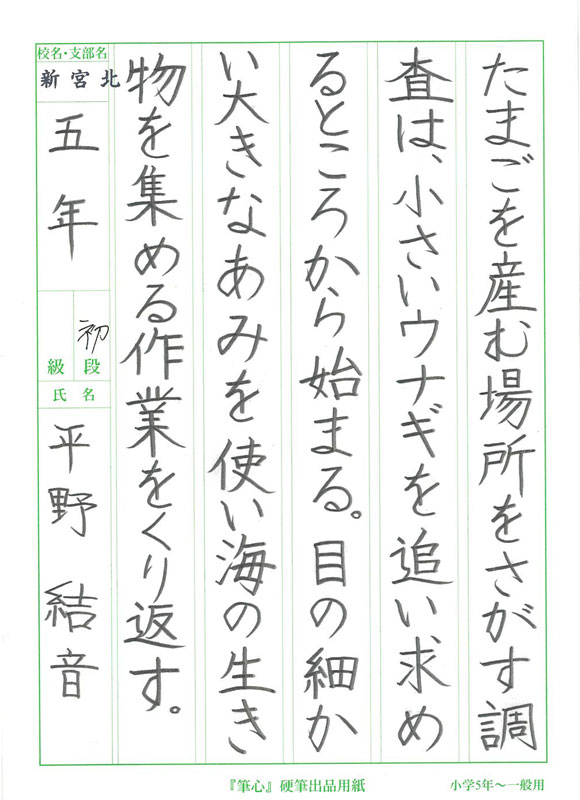 たまごを産む場所をさがす調
査は、小さいウナギを追い求め
るところから始まる。目の細か
い大きなあみを使い海の生き
物を集める作業をくり返す。
校名・支部名
新宮北
五年
初段
級
氏名
平野結音
『筆心』硬筆出品用紙
小学5年〜一般用